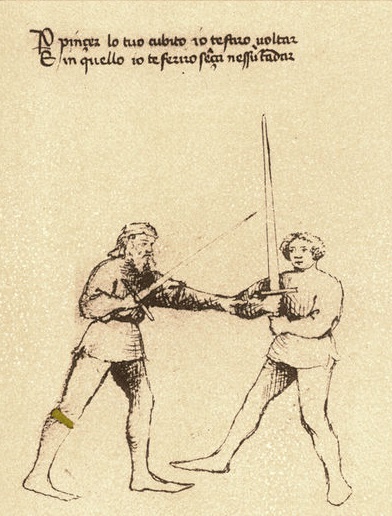 P pinçer lo tuo cubito io te faro voltar
E in quello io te feriro sẽça nessũ tadar